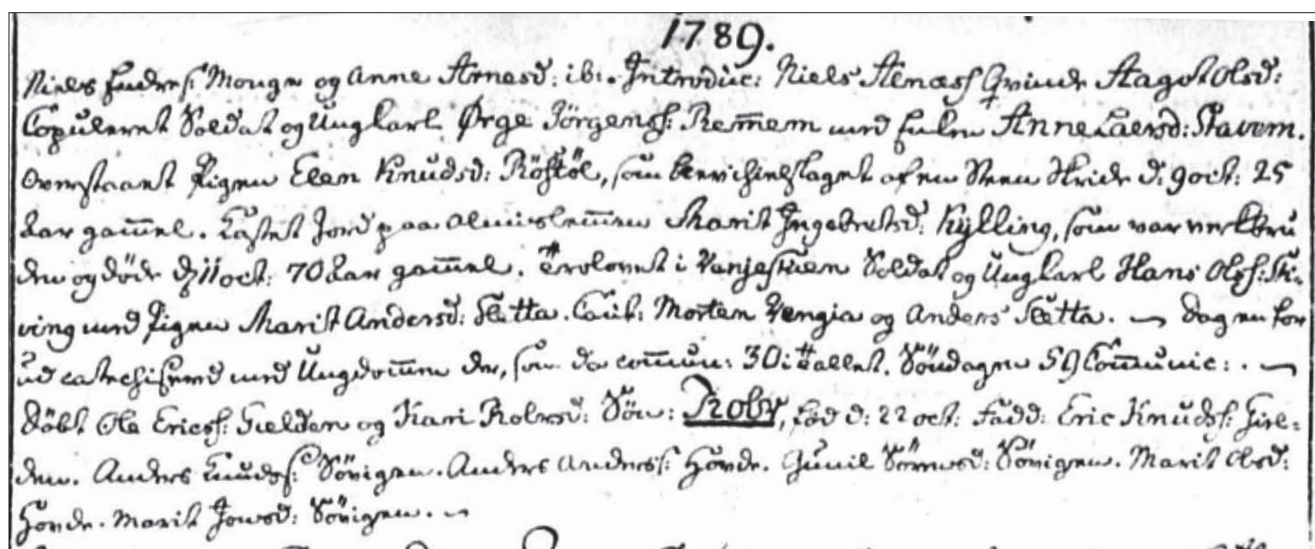 1789.
Niels Endres: Monge og Anne Arnesd: ib: . Introduc: Niels Steness: Qvinde Aagot Olsd:
Copuleret Soldat og Ungkarl Ørge Jörgenss: Remem med Enken Anne Laersd: Stavem.
Overstaaet Pigen Elen Knudsd: Röstöl, som blev ihielslaget af en Steen Skride d: 9 oct: 25
Aar gamel. Kastet Jord paa Almislemen Marit Ingebretsd: Kÿlling, som var verkbru
den og döde d: 11 oct: 70 Aar gamel. Trolovet i Venjestuen Soldat og Ungkarl Hans Olss: Ski-
ving med Pigen Marit Andersd: Sletta. Caut: Morten Vengia og Anders Sletta. Dagen for
ud catechisered med Ungdomen der, som da comun: 30 i Tallet. Söndagen 59 Comunic: .
Döbt Ole Ericss: Gielden og Kari Rolvsd: Sön: Rolv, föd d: 22 oct: Fadd: Eric Knudss: Giel-
den. Anders Knudss: Sövigen. Anders Anderss: Horde. Gunil Sörensd: Sövigen. Marit Olsd:
Horde. Marit Jonsd: Sövigen.